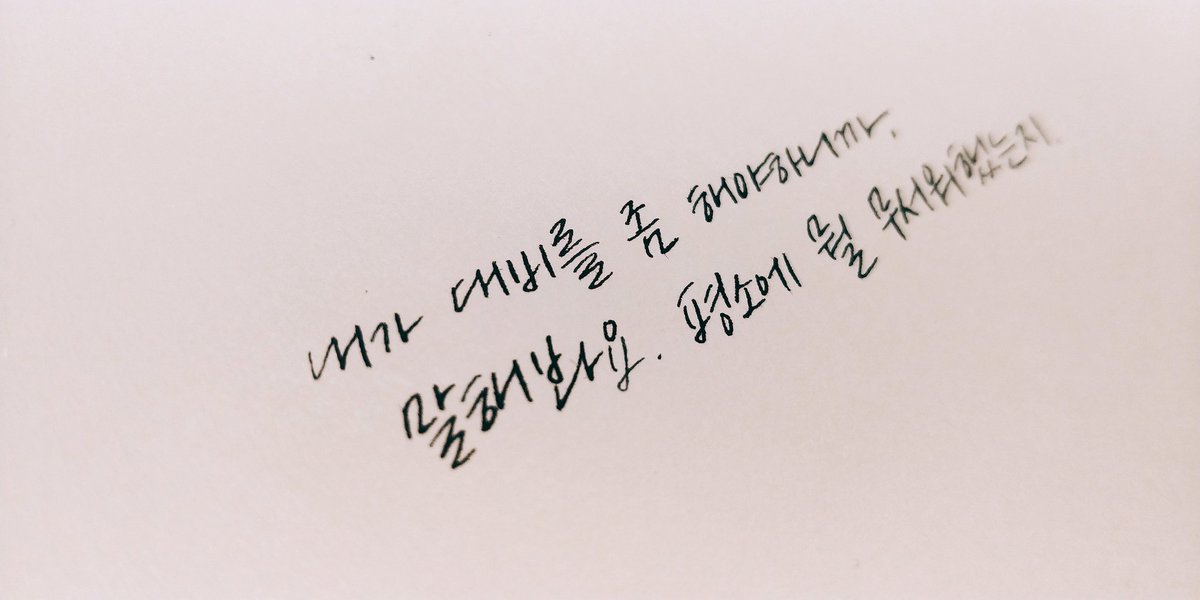 내가 대비를 좀 해야하니까,
말해봐요. 평소에 뭘 무서워했는지.